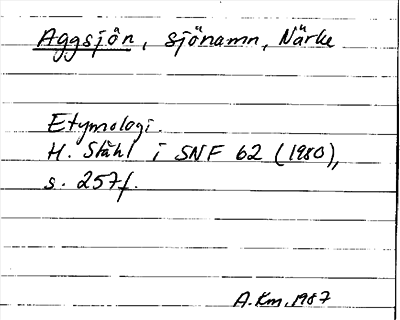 Aggsjön, sjönamn, Närke
Etymologi.
H. Ståhl i SNF 62 (1980),
s. 257f.
A.Km.1987